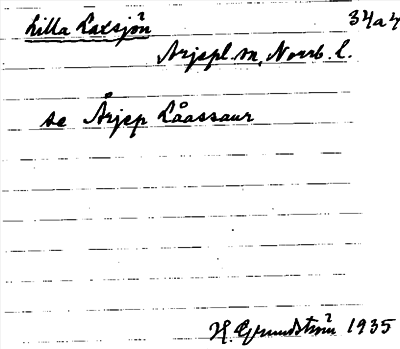 Lilla Laxsjön 34a4
Arjepl. sn, Norrb. l.
se Årjep Låassaur
H. Grundström 1935